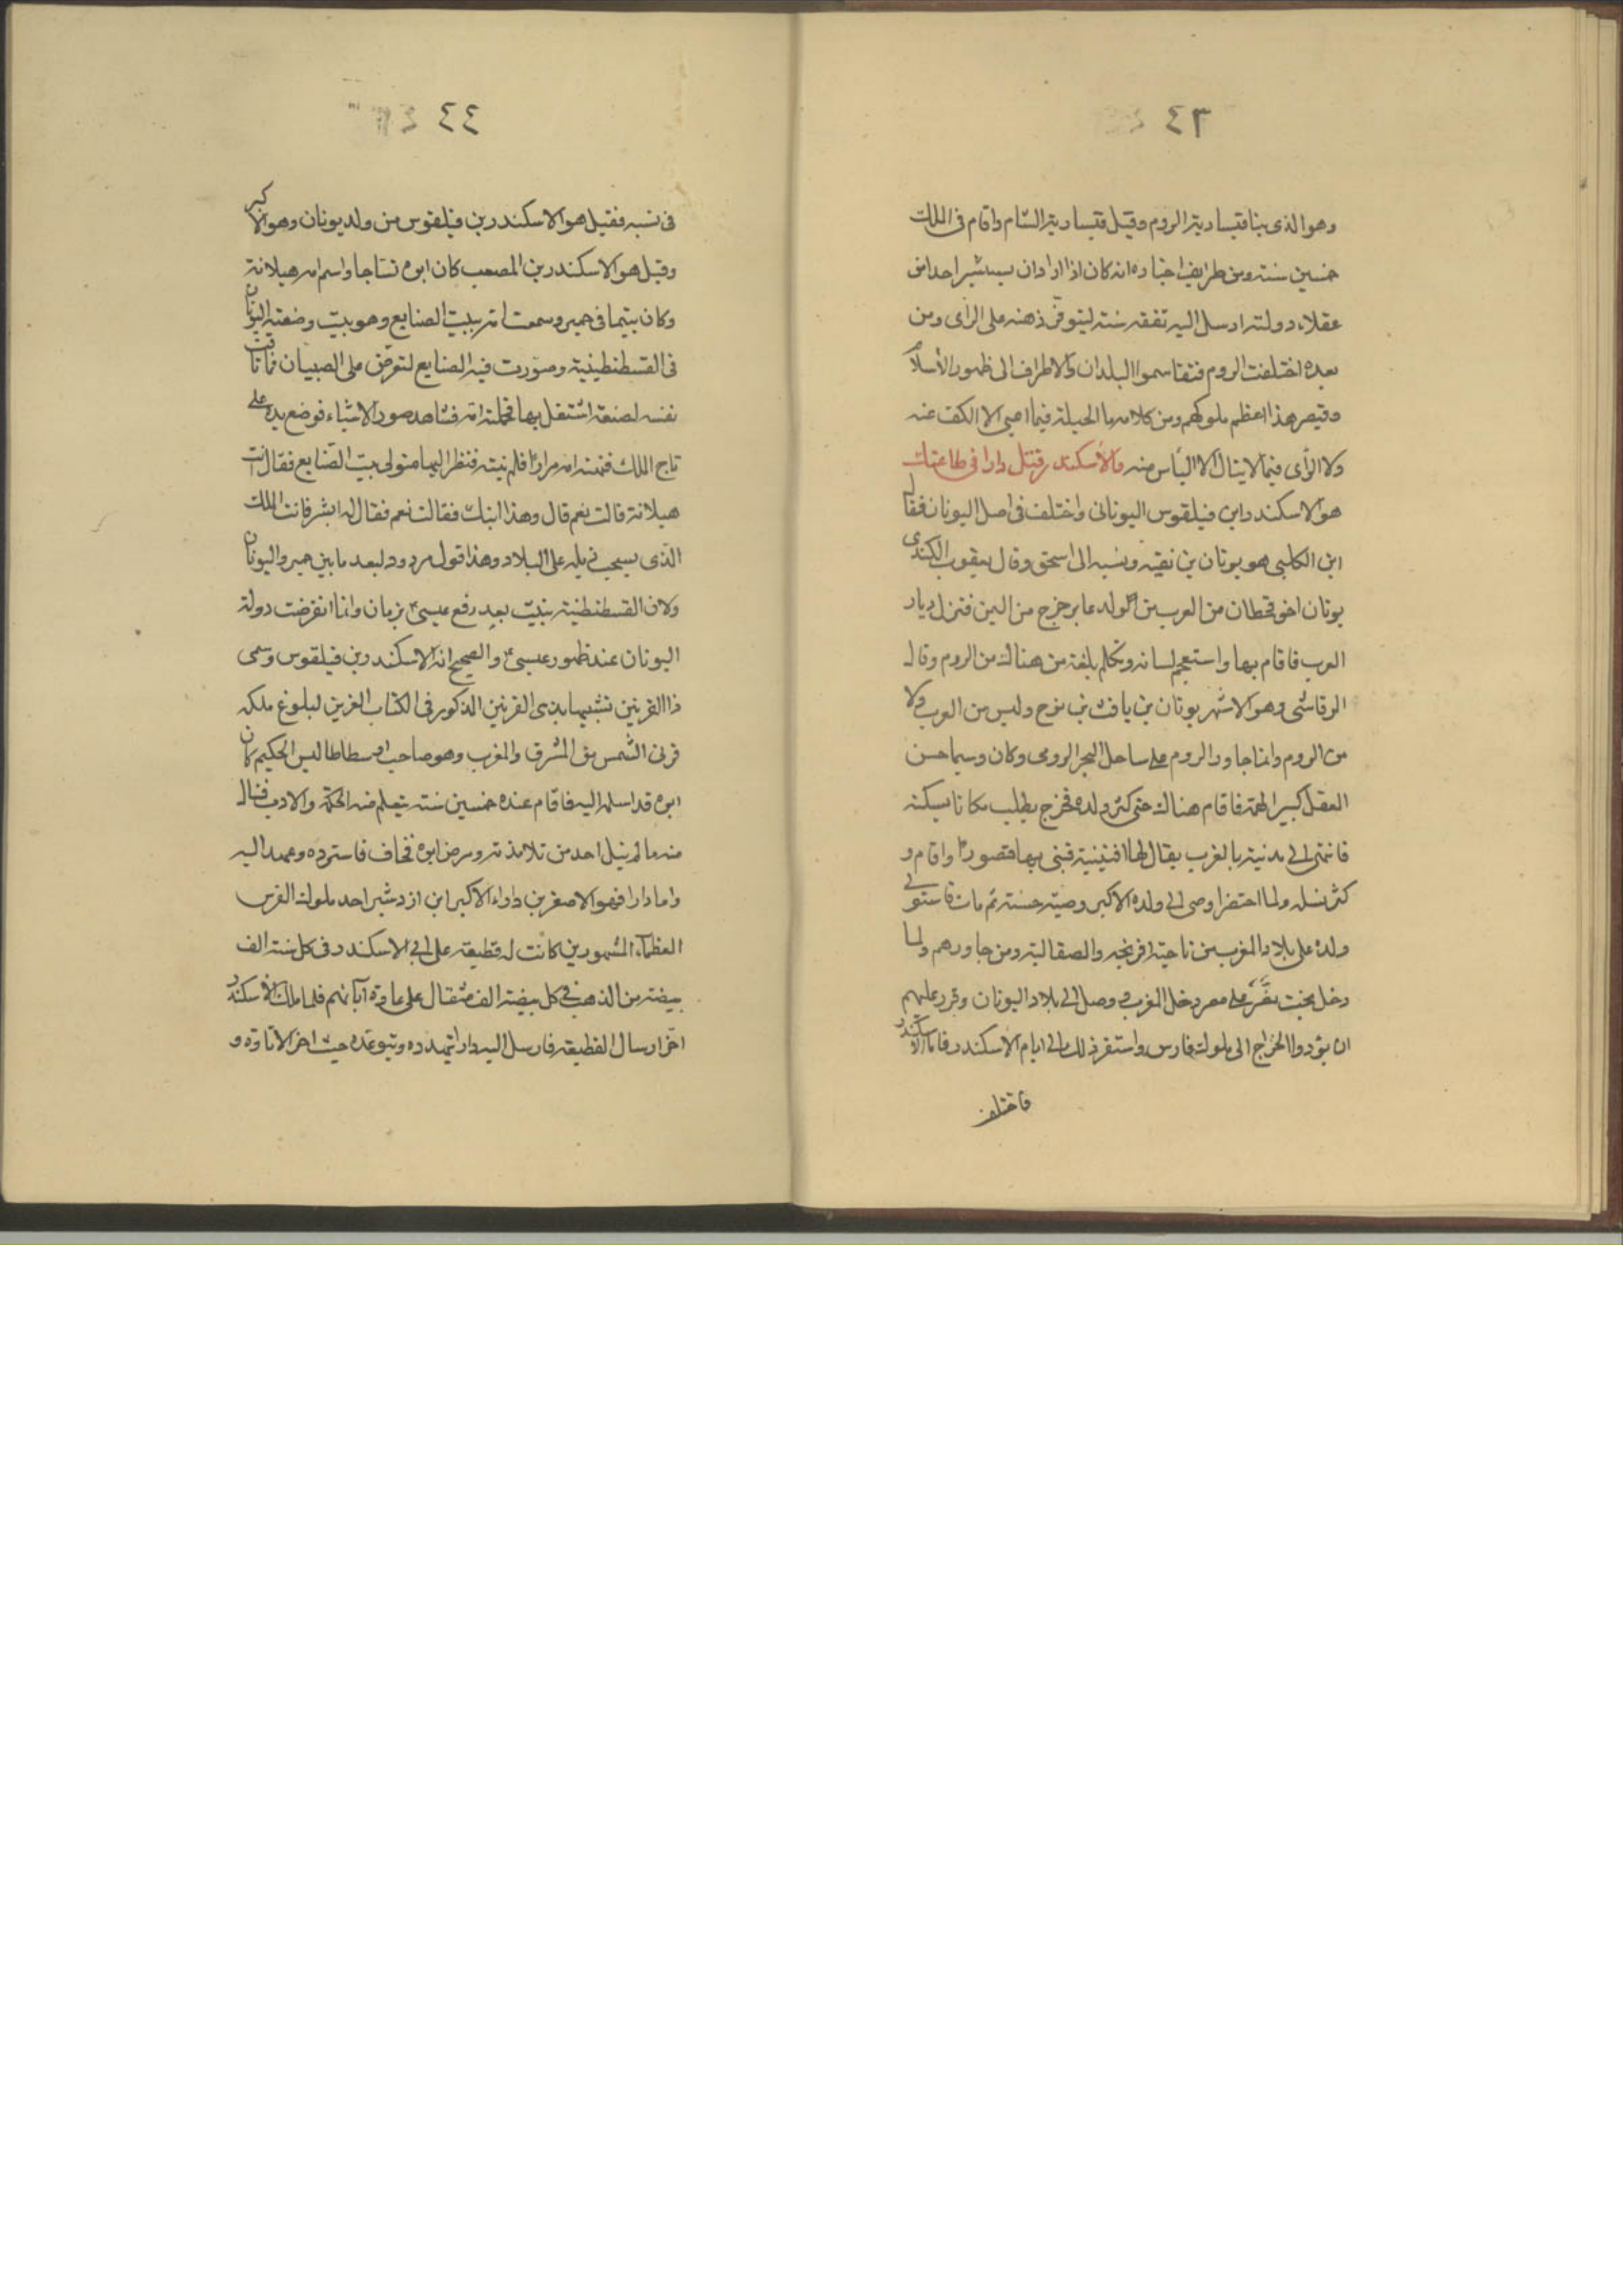 ٤٣
وهو الذى بنا قيسارية الروم وقيل قيسارية الشام واقام فى الملك
خمسين سنة ومن طرايف اخباره انه كان اذا اراد ان يستشير احدا من
عقلاء دولته ارسل اليه نفقه سنة ليتوفّر ذهنه على الراى ومن
بعده اختلفت الروم فتقاسموا البلدان والاطراف الى ظهور الأسلام
وقيصر هذا اعظم ملوكهم ومن كلامه ما الحيلة فيما اعيى الا الكف عنه
ولا الرأى فيما لا ينال الا الياس منه والأسكندر قتل دارا فى طاعتك
هو الاسكندر ابن فيلقوس اليونانى واختلف فى اصل اليونان فقال
ابن الكلبى هو يونان بن نقيه ونسبه الى اسحق وقال يعقوب الكندى
يونان اخو قحطان من العرب من ولد عابر خرج من اليمن فنزل ديار
العرب فاقام بها واستعجم لسانه وتكلم بلغة من هناك من الروم وقال
الرقاشى وهو الاشهر يونان بن يافث بن نوح وليس من العرب ولا
من الروم وانما جاور الروم على ساحل البحر الرومى وكان وسيما حسن
العقل كبير الهمة فاقام هناك حتى كثر ولده فخرج يطلب مكانا يسكنه
فانتهى الى مدنية بالغرب يقال لها افيثينية فبنى بها قصورا واقام و
كثر نسله ولما احتضر اوصى الى ولده الاكبر وصيّة حسنة ثم مات فاستولى
ولده على بلاد المغرب من ناحية افرنجه والصقالبة ومن جاورهم ولما
دخل بخت نصّر على مصر دخل المغرب ووصل الى بلاد اليونان وقرر عليهم
ان يؤدوا الخراج الى ملوك فارس واستقر ذلك الى ايام الاسكندر فاما الاسكندر
فاختلف
٤٤
فى نسبه فقيل هو الاسكندر بن فيلقوس من ولد يونان وهو الاكبر
وقيل هو الاسكندر بن المصعب كان ابوه نساجا واسم امه هيلانة
وكان يتيما فى حمير وسمعت امه ببيت الصنايع وهو بيت وضعته اليونان
فى القسطنطينية وصوّرت فيه الصنايع لتعرض على الصبيان فما تاقت
نفسه لصنعة اشتغل بها فحملته امه فشاهد صور الاشياء فوضع يده على
تاج الملك فنهته امه مرارا فلم ينته فنظر اليها متولى بيت الصّنايع فقال انت
هيلانة قالت نعم قال وهذا ابنك فقالت نعم فقال له ابشر فانت الملك
الذّى يسحب ذيله على البلاد وهذا قول مردود لبعد ما بين حمير واليونان
ولان القسطنطنية بنيت بعد رفع عيسى بزمان وانما انقرضت دولة
اليونان عند ظهور عيسى والصحيح انه الاسكندر بن فيلقوس وسمى
ذا القرنين تشبيها بذى القرنين المذكور فى الكتاب العزيز لبلوغ ملكه
قرنى الشّمس من المشرق والمغرب وهو صاحب ارسطاطاليس الحكيم كان
ابوه قد اسلمه اليه فاقام عنده خمسين سنة يتعلم منه الحكمة والادب فنال
منه ما لم ينل احد من تلامذته ومرض ابوه فخاف فاسترده وعهد اليه
واما دارا فهو الاصغر بن داراء الاكبر ابن ازدشير احد ملوك الفرس
العظماء المشهورين كانت له قطيعة على ابى الاسكندر فى كل سنة الف
بيضة من الذهب فى كل بيضة الف مثقال على عادة آبائهم فلما ملك الاسكندر
اخّر ارسال القطيعة فارسل اليه دارا يتهدده ويتوعّده حيث اخر الاتاوة و